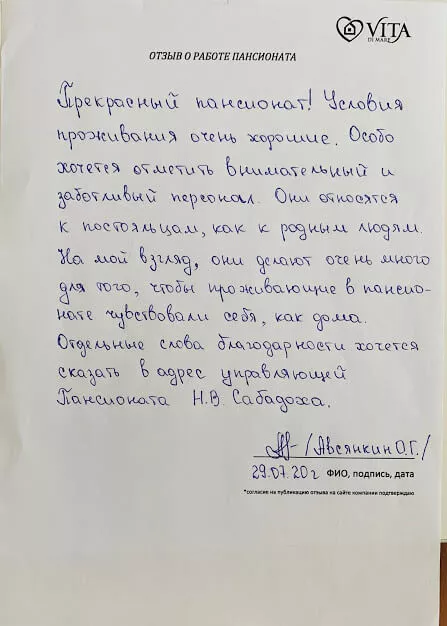 VITA
DI MARE
ОТЗЫВ О РАБОТЕ ПАНСИОНАТА
Прекрасный пансионат! Условия
проживания очень хорошие. Особо
хочется отметить внимательный и
заботливый персонал. Они относятся
к постояльцам, как к родным людям.
На мой взгляд, они делают очень много
для того, чтобы проживающие в пансио-
нате чувствовали себя, как дома.
Отдельные слова благодарности хочется
сказать в адрес управляющей
Пансионата Н.В. Сабадоха.
/Авсянкин О.Г./
29.07.20г ФИО, подпись, дата
*согласие на публикацию отзыва на сайте компании подтверждаю